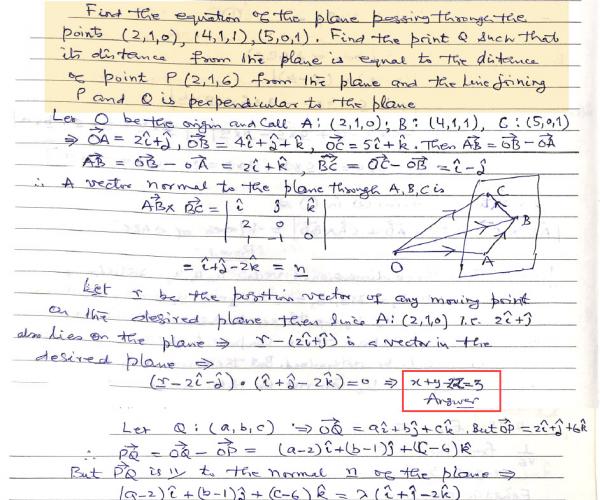 Find the equation of the plane passing through the
points (2,1,0), (4,1,1), (5,0,1). Find the point Q such that
its distance from the plane is equal to the distance
of point P (2,1,6) from the plane and the line joining
P and Q is perpendicular to the plane
Let O be the origin and call A: (2,1,0); B: (4,1,1), C: (5,0,1)
⇒ →OA = 2î+ĵ, →OB = 4î+ĵ+k̂, →OC = 5î+k̂. Then →AB = →OB-→OA
→AB = →OB-→OA = 2î+k̂, →BC = →OC-→OB = î-ĵ
∴ A vector normal to the plane through A,B,C is
→AB × →BC = | î ĵ k̂ |
2 0 1
1 -1 0
= î+ĵ-2k̂ = n
C
B
A
O
Let r be the position vector of any moving point
on the desired plane then since A: (2,1,0) i.e. 2î+ĵ
also lies on the plane ⇒ r-(2î+ĵ) is a vector in the
desired plane ⇒
(r-2î-ĵ)•(î+ĵ-2k̂)=0 ⇒ x+y-2z=3
Answer
Let Q: (a,b,c) ⇒ →OQ = aî+bĵ+ck̂. But →OP = 2î+ĵ+6k̂
∴ →PQ = →OQ-→OP = (a-2)î+(b-1)ĵ+(c-6)k̂
But →PQ is || to the normal n of the plane ⇒
(a-2)î+(b-1)ĵ+(c-6)k̂ = λ(î+ĵ-2k̂)